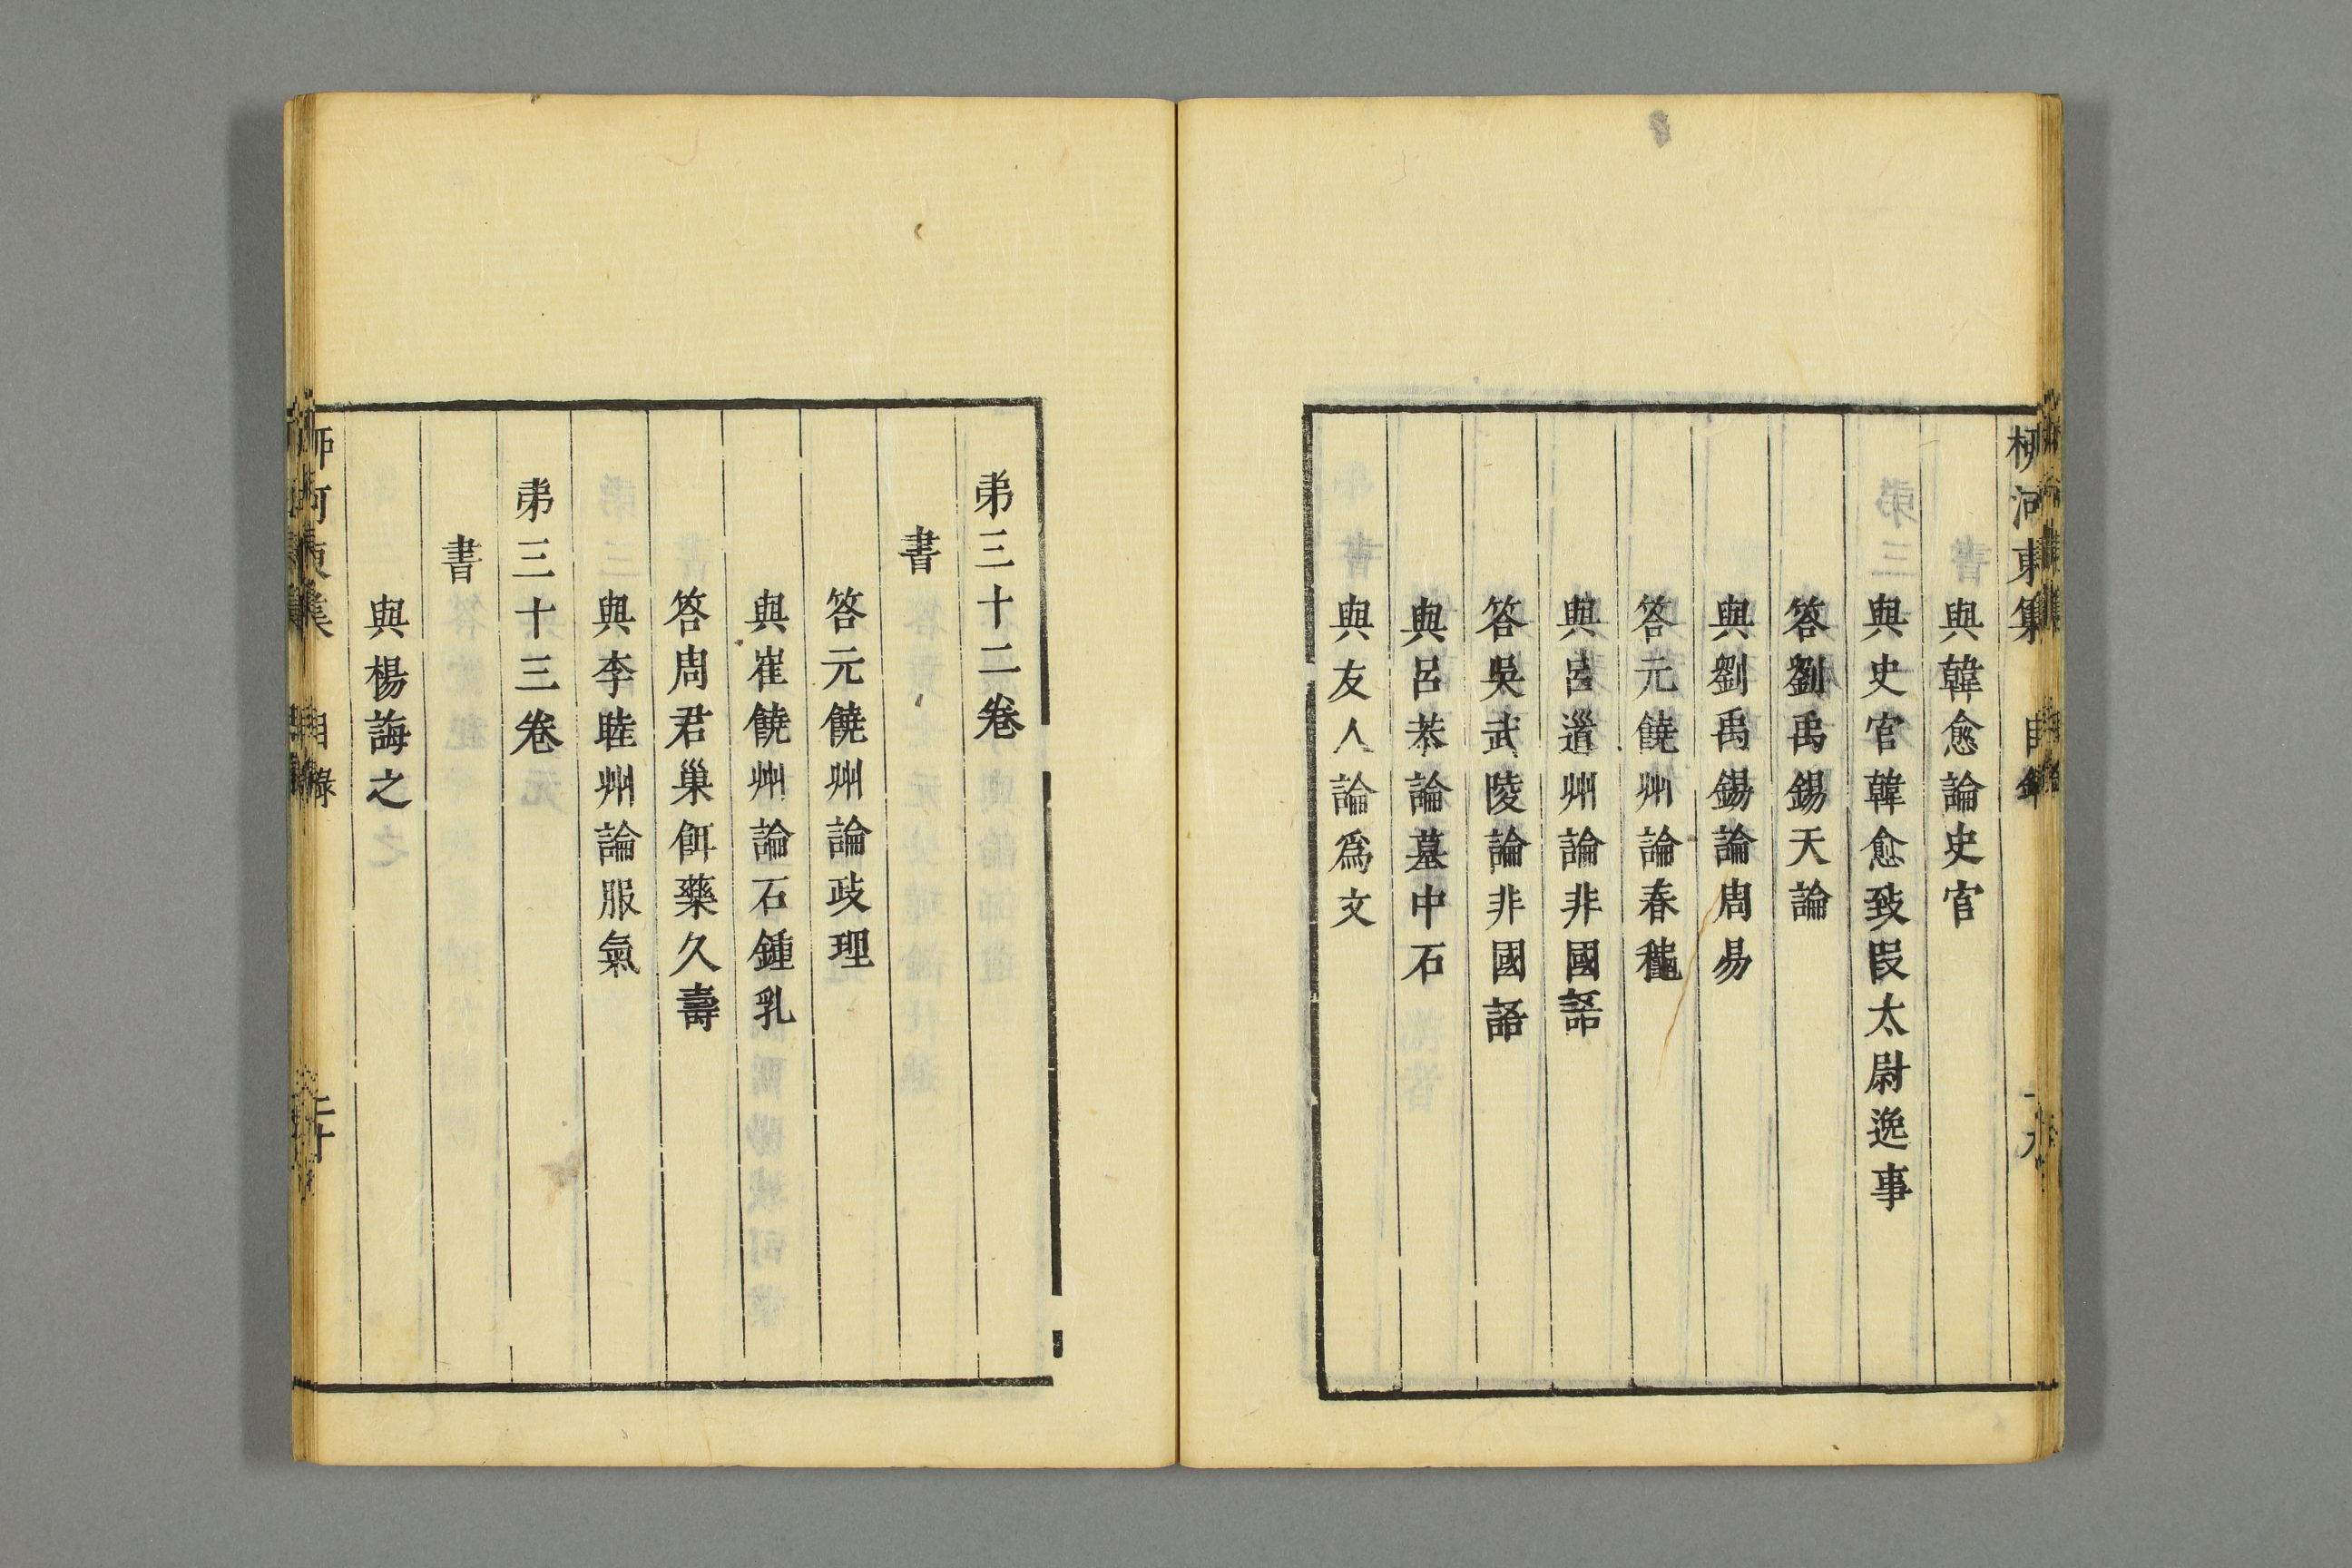 柳河東集 目錄
與韓愈論史官
與史官韓愈致叚太尉逸事
答劉禹錫天論
與劉禹錫論周易
答元饒州論春龝
與呂道州論非國語
答吳武陵論非國語
與呂恭論墓中石
與友人論爲文
弟三十二卷
書
答元饒州論政理
與崔饒州論石鍾乳
答周君巢餌藥久壽
與李睦州論服氣
弟三十三卷
書
與楊誨之
柳河東集 目錄 二十